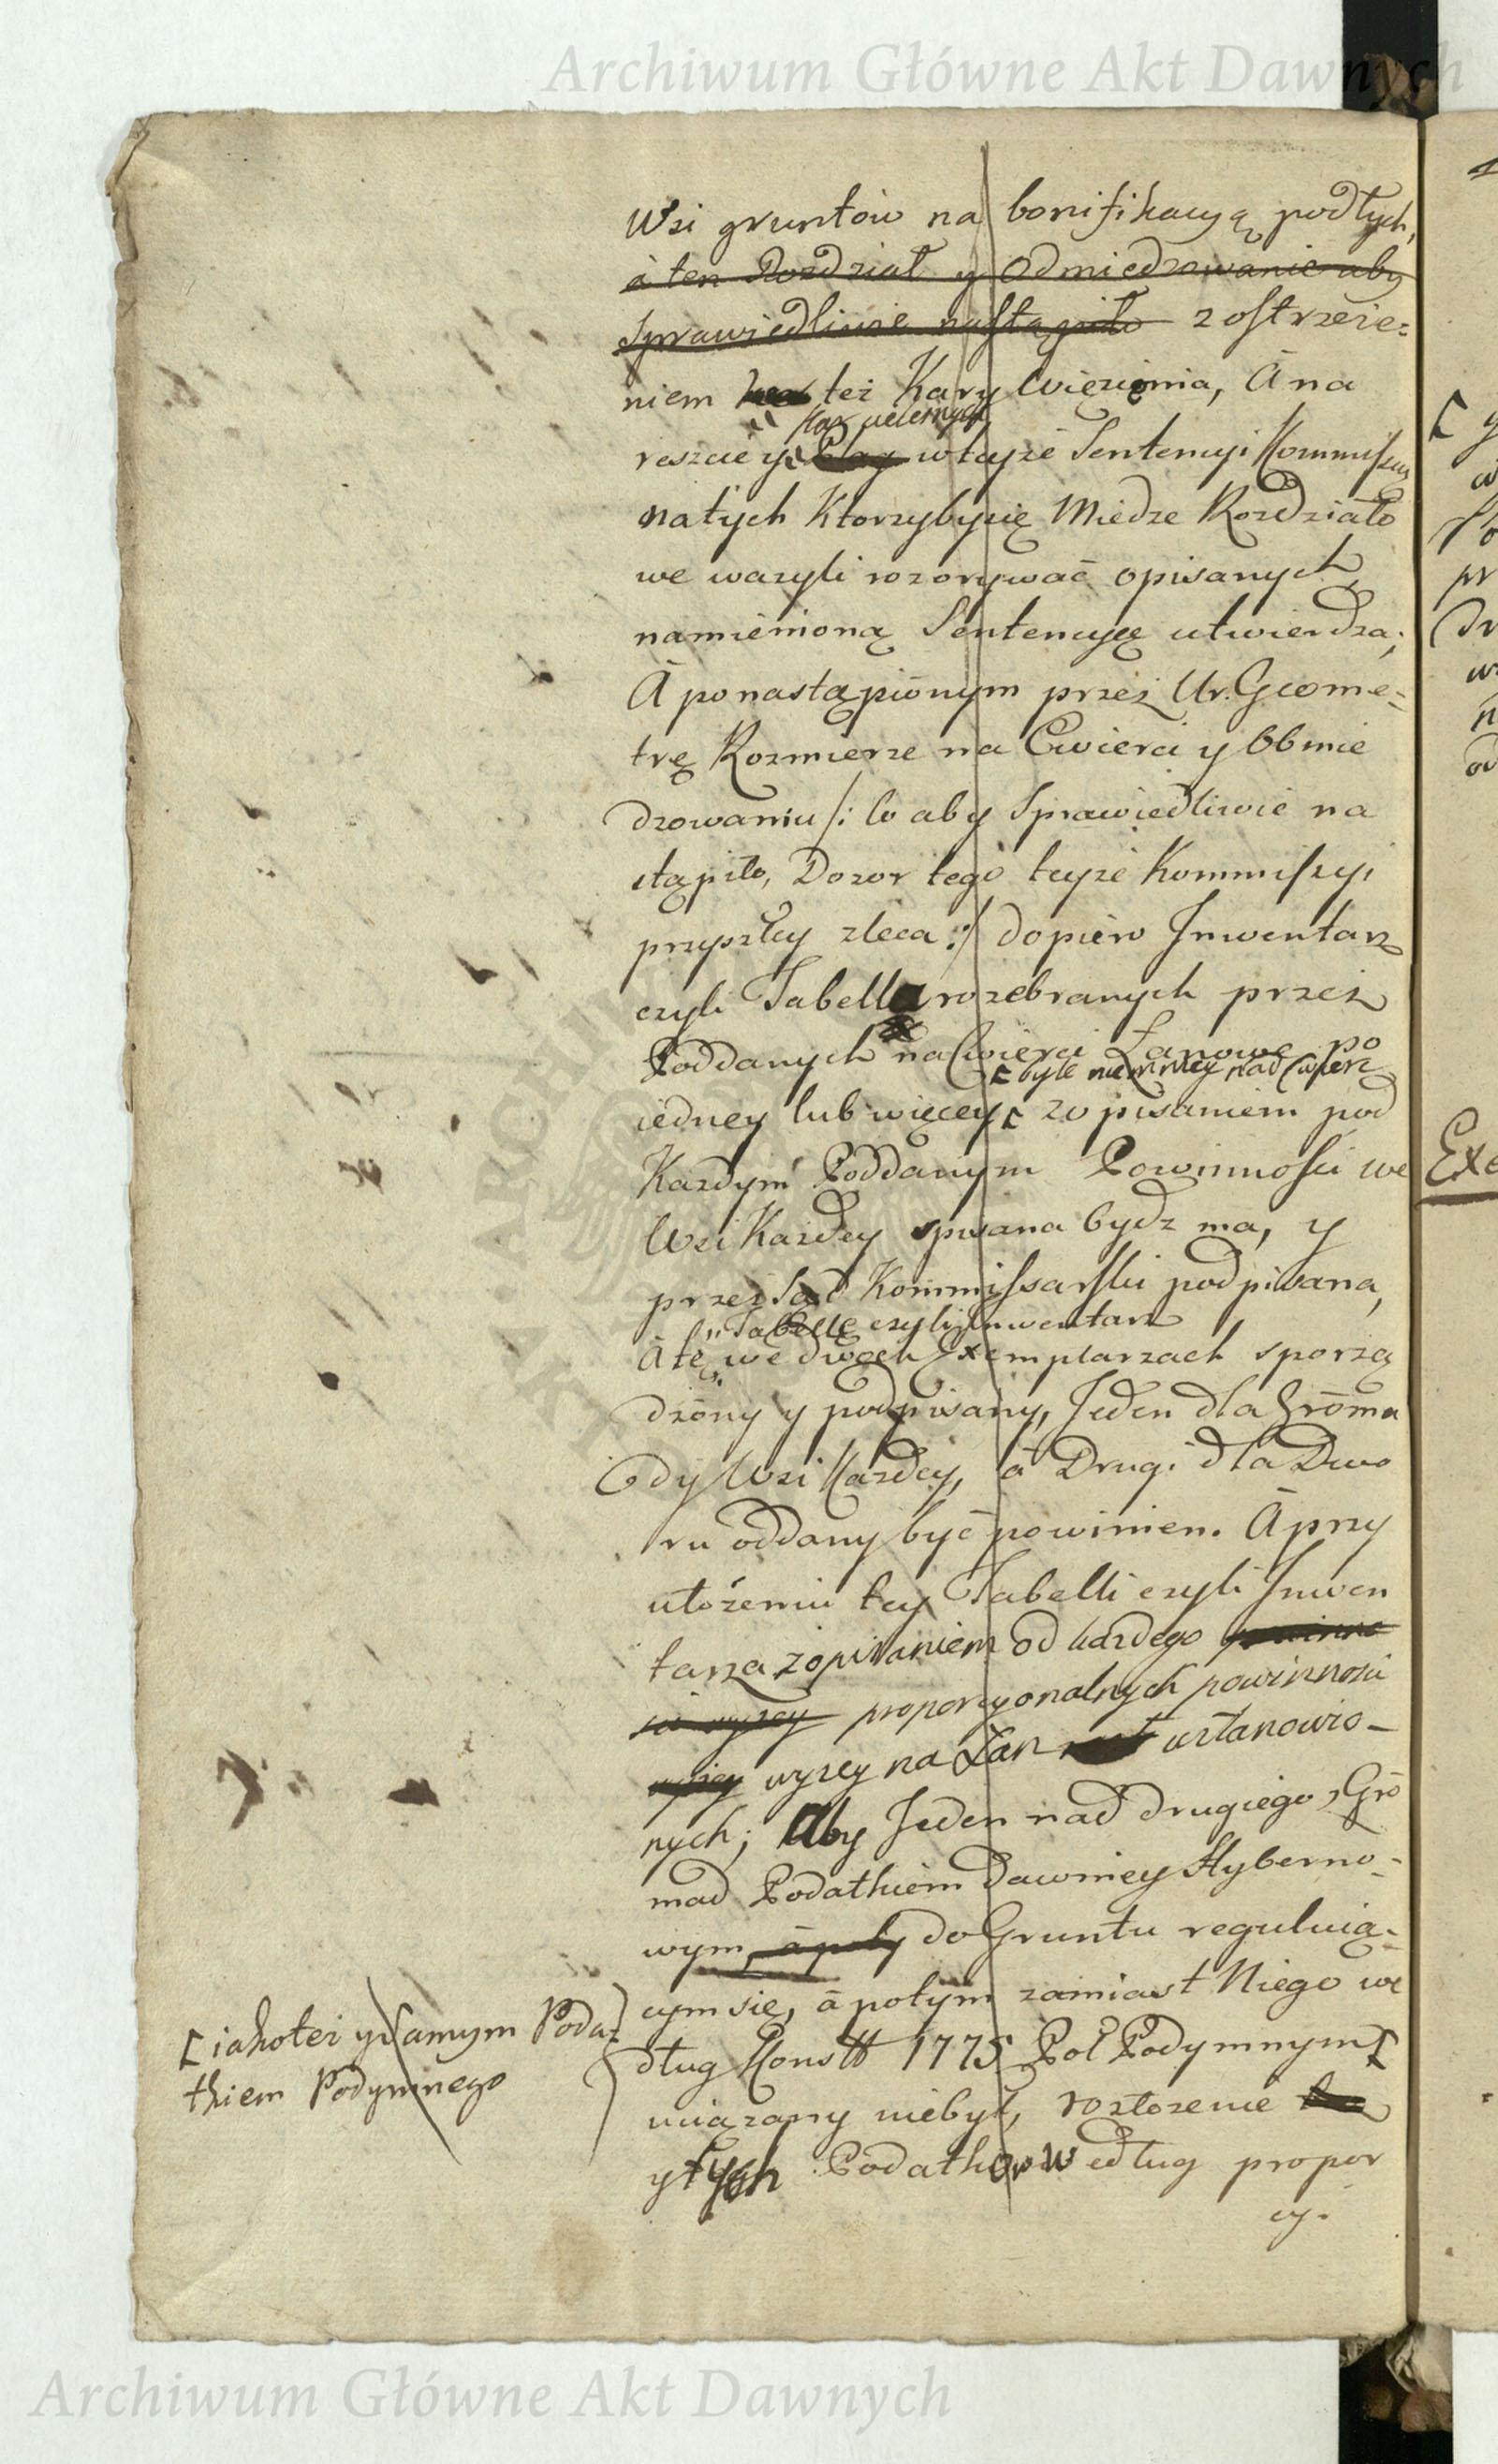 Archiwum Główne Akt Dawnych
Wsi gruntów na bonifikacyą podłych,
à ten Rozdział y Odmiedzowanie aby
Sprawiedliwie nastąpiło z ostrzeże=
niem też Kary Więzienia, A na
kar cielesnych
reszcie y Plag w teyże Sentencyi Kommissar
na tych Ktorzyby się Miedze Rozdziało
we ważyli rozorywać opisanych
namienioną Sentencyę utwierdza,
A po nastąpionym przez Ur. Geome=
trę Rozmierze na Cwierci y Obmie
dzowaniu /: Co aby Sprawiedliwie na
stąpiło, Dozor tego teyże Kommissyi
przyszłey zleca :/ dopiero Jnwentarz
czyli Tabella rozebranych przez
Poddanych na Cwierci Łanowe po
byle niemniey nad Cwierc
iedney lub więcey z opisaniem pod
Każdym Poddanym Powinności we
Wsi Każdey spisana bydz ma, y
przez Sąd Kommissarski podpisana,
Tabellę czyli Jnwentarz
A tę we dwoch Exemplarzach sporzą
dzony y podpisany, Jeden dla Groma
dy Wsi Każdey, à Drugi dla Dwo
ru oddany być powinien. A przy
ułożeniu tey Tabelli czyli Jnwen
tarza z opisaniem od każdego powinno
ści wyzey proporcyonalnych powinnosci
wyzey wyzey na Łan ustanowio-
nych; Aby Jeden nad drugiego Gro
mad Podatkiem dawniey Hyberno-
wym, à poty do Gruntu reguluią=
cym się, à potym zamiast Niego we
dług Konstt 1775 Poł Podymnym
uciązany niebył, rozłozenie
y tych Podatkow według propor
cy.
iakotez y samym Poda
tkiem Podymnego
Exe
Archiwum Główne Akt Dawnych